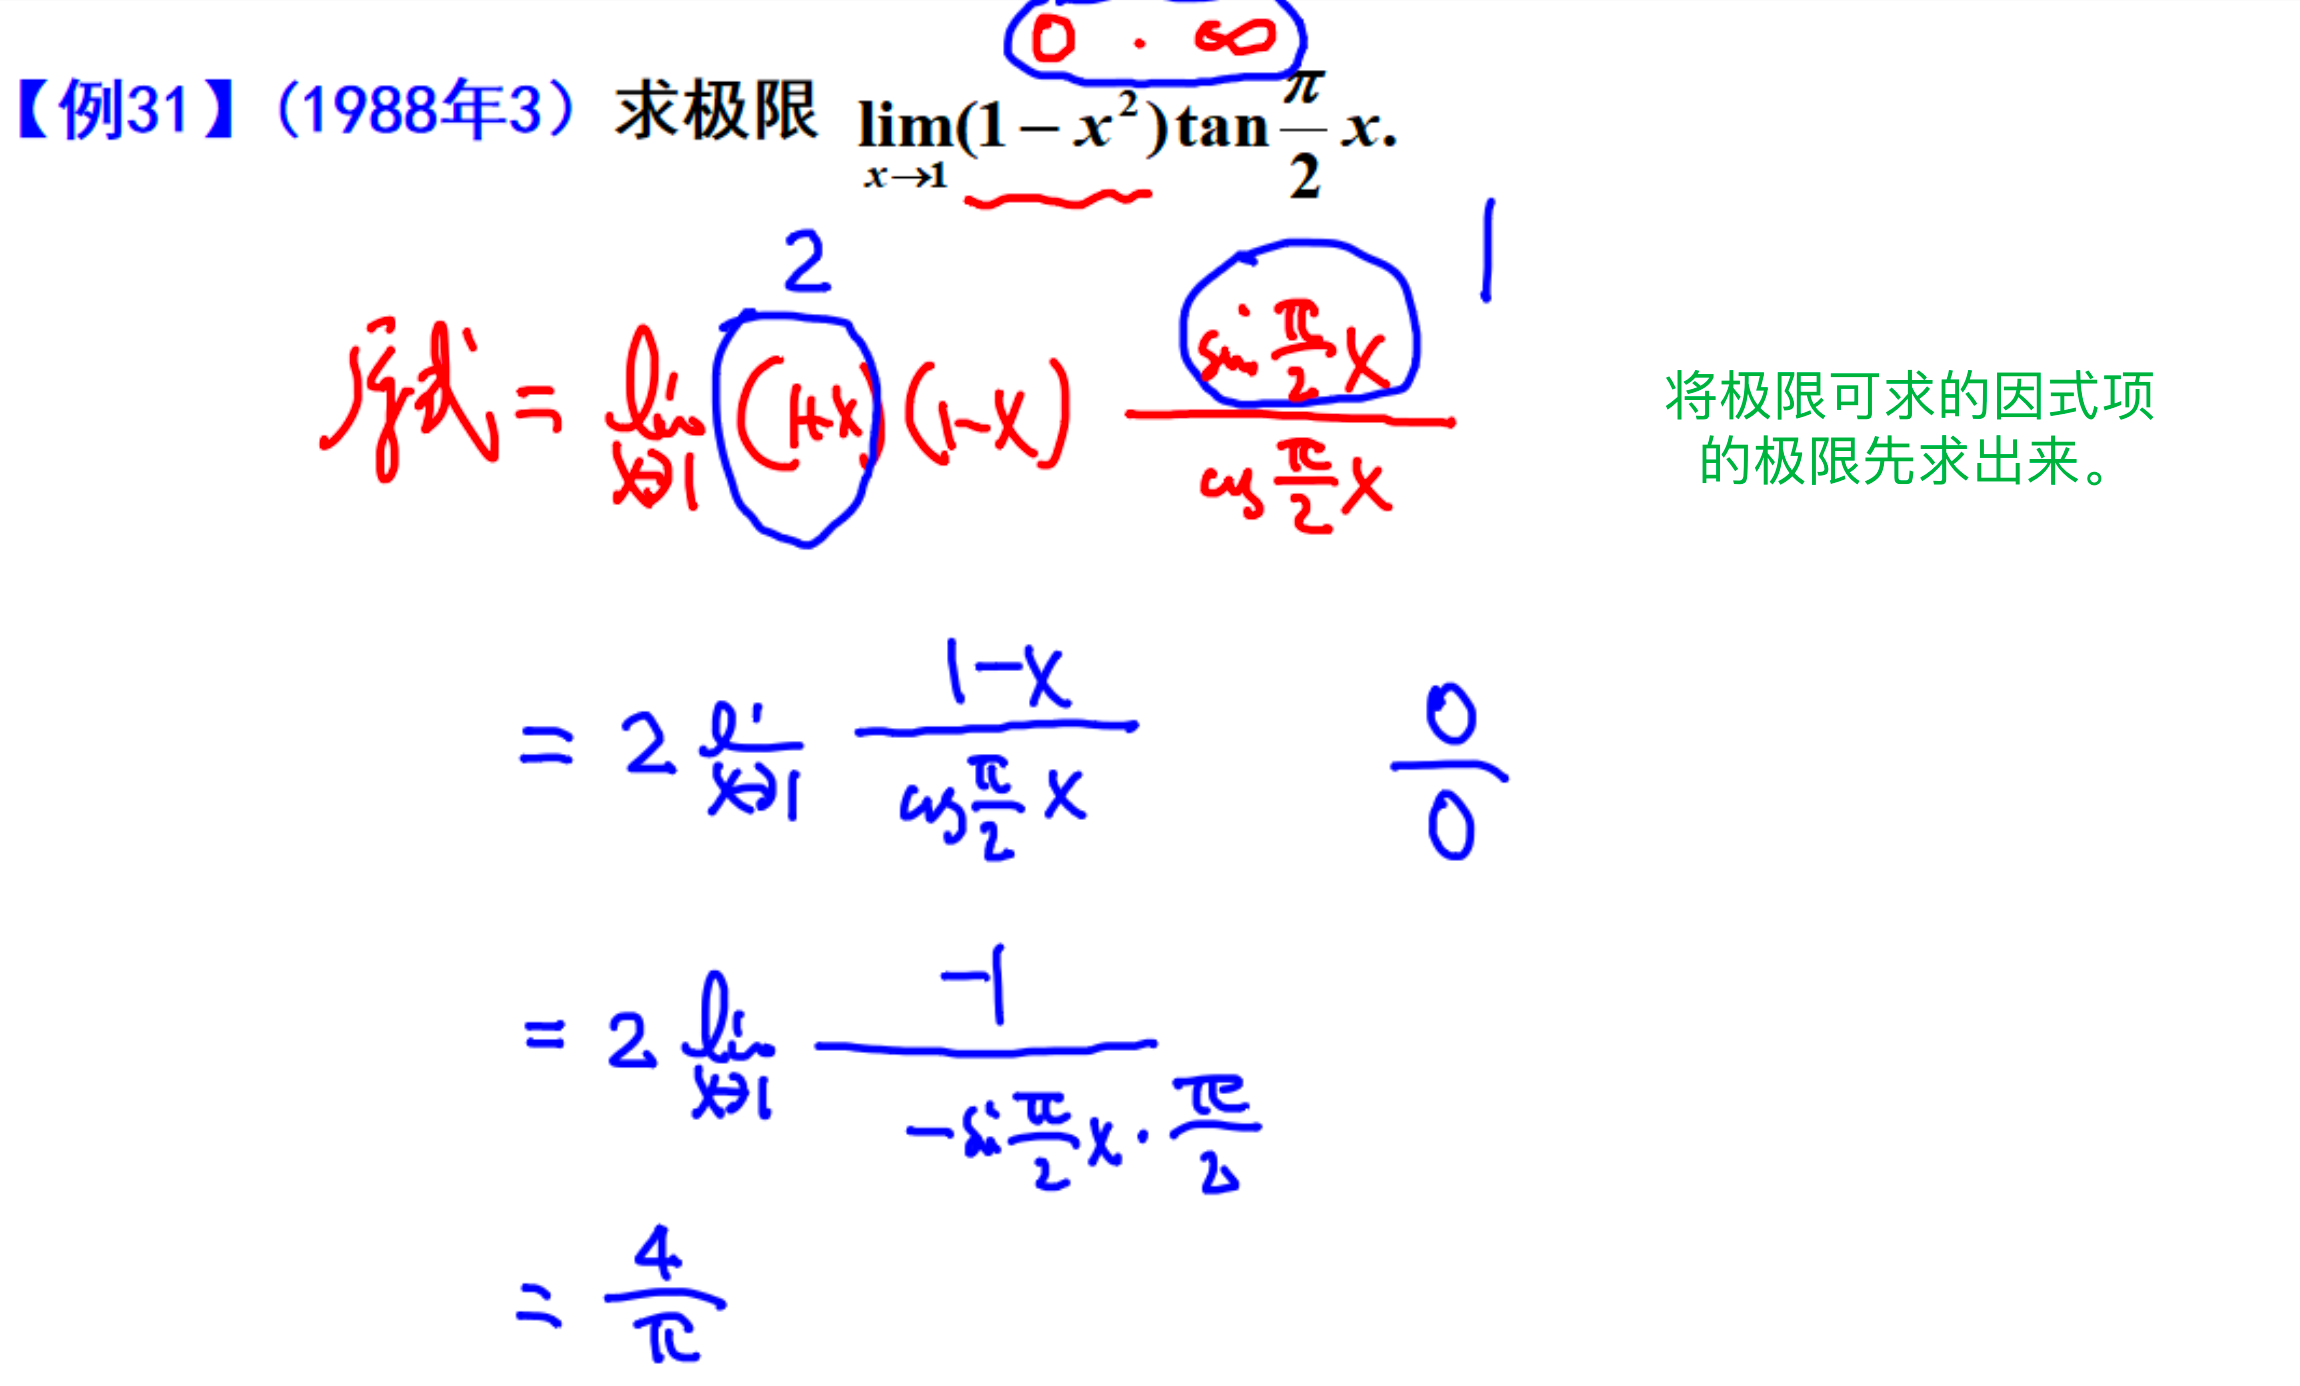 0 · ∞
【例31】(1988年3) 求极限 lim_{x→1}(1-x²)tan π/2 x.
2
1
原式 = lim_{x→1} (1+x)(1-x) (sin π/2 x)/(cos π/2 x)
将极限可求的因式项
的极限先求出来。
= 2 lim_{x→1} (1-x)/(cos π/2 x)
0/0
= 2 lim_{x→1} (-1)/(-sin π/2 x · π/2)
= 4/π